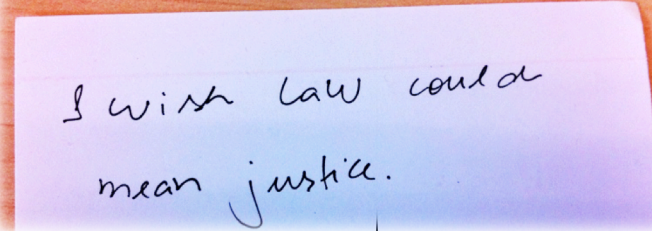 I wish law could
mean justice.